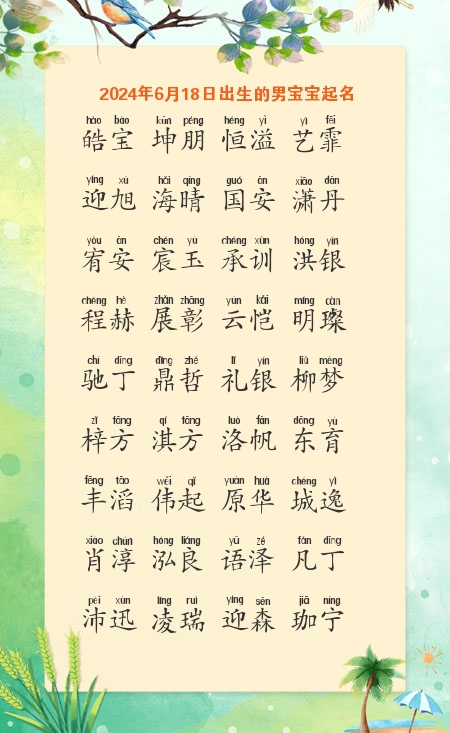 2024年6月18日出生的男宝宝起名
hào bǎo kūn péng héng yì yì fēi
皓宝 坤朋 恒溢 艺霏
yíng xù hǎi qíng guó ān xiāo dān
迎旭 海晴 国安 潇丹
yòu ān chén yù chéng xùn hóng yín
宥安 宸玉 承训 洪银
chéng hè zhǎn zhāng yún kǎi míng càn
程赫 展彰 云恺 明璨
chí dīng dǐng zhé lǐ yín liǔ mèng
驰丁 鼎哲 礼银 柳梦
zǐ fāng qí fāng luò fān dōng yù
梓方 淇方 洛帆 东育
fēng tāo wěi qǐ yuán huá chéng yì
丰滔 伟起 原华 城逸
xiào chún hóng liáng yǔ zé fán dīng
肖淳 泓良 语泽 凡丁
pèi xùn líng ruì yíng sēn jiā níng
沛迅 凌瑞 迎森 珈宁